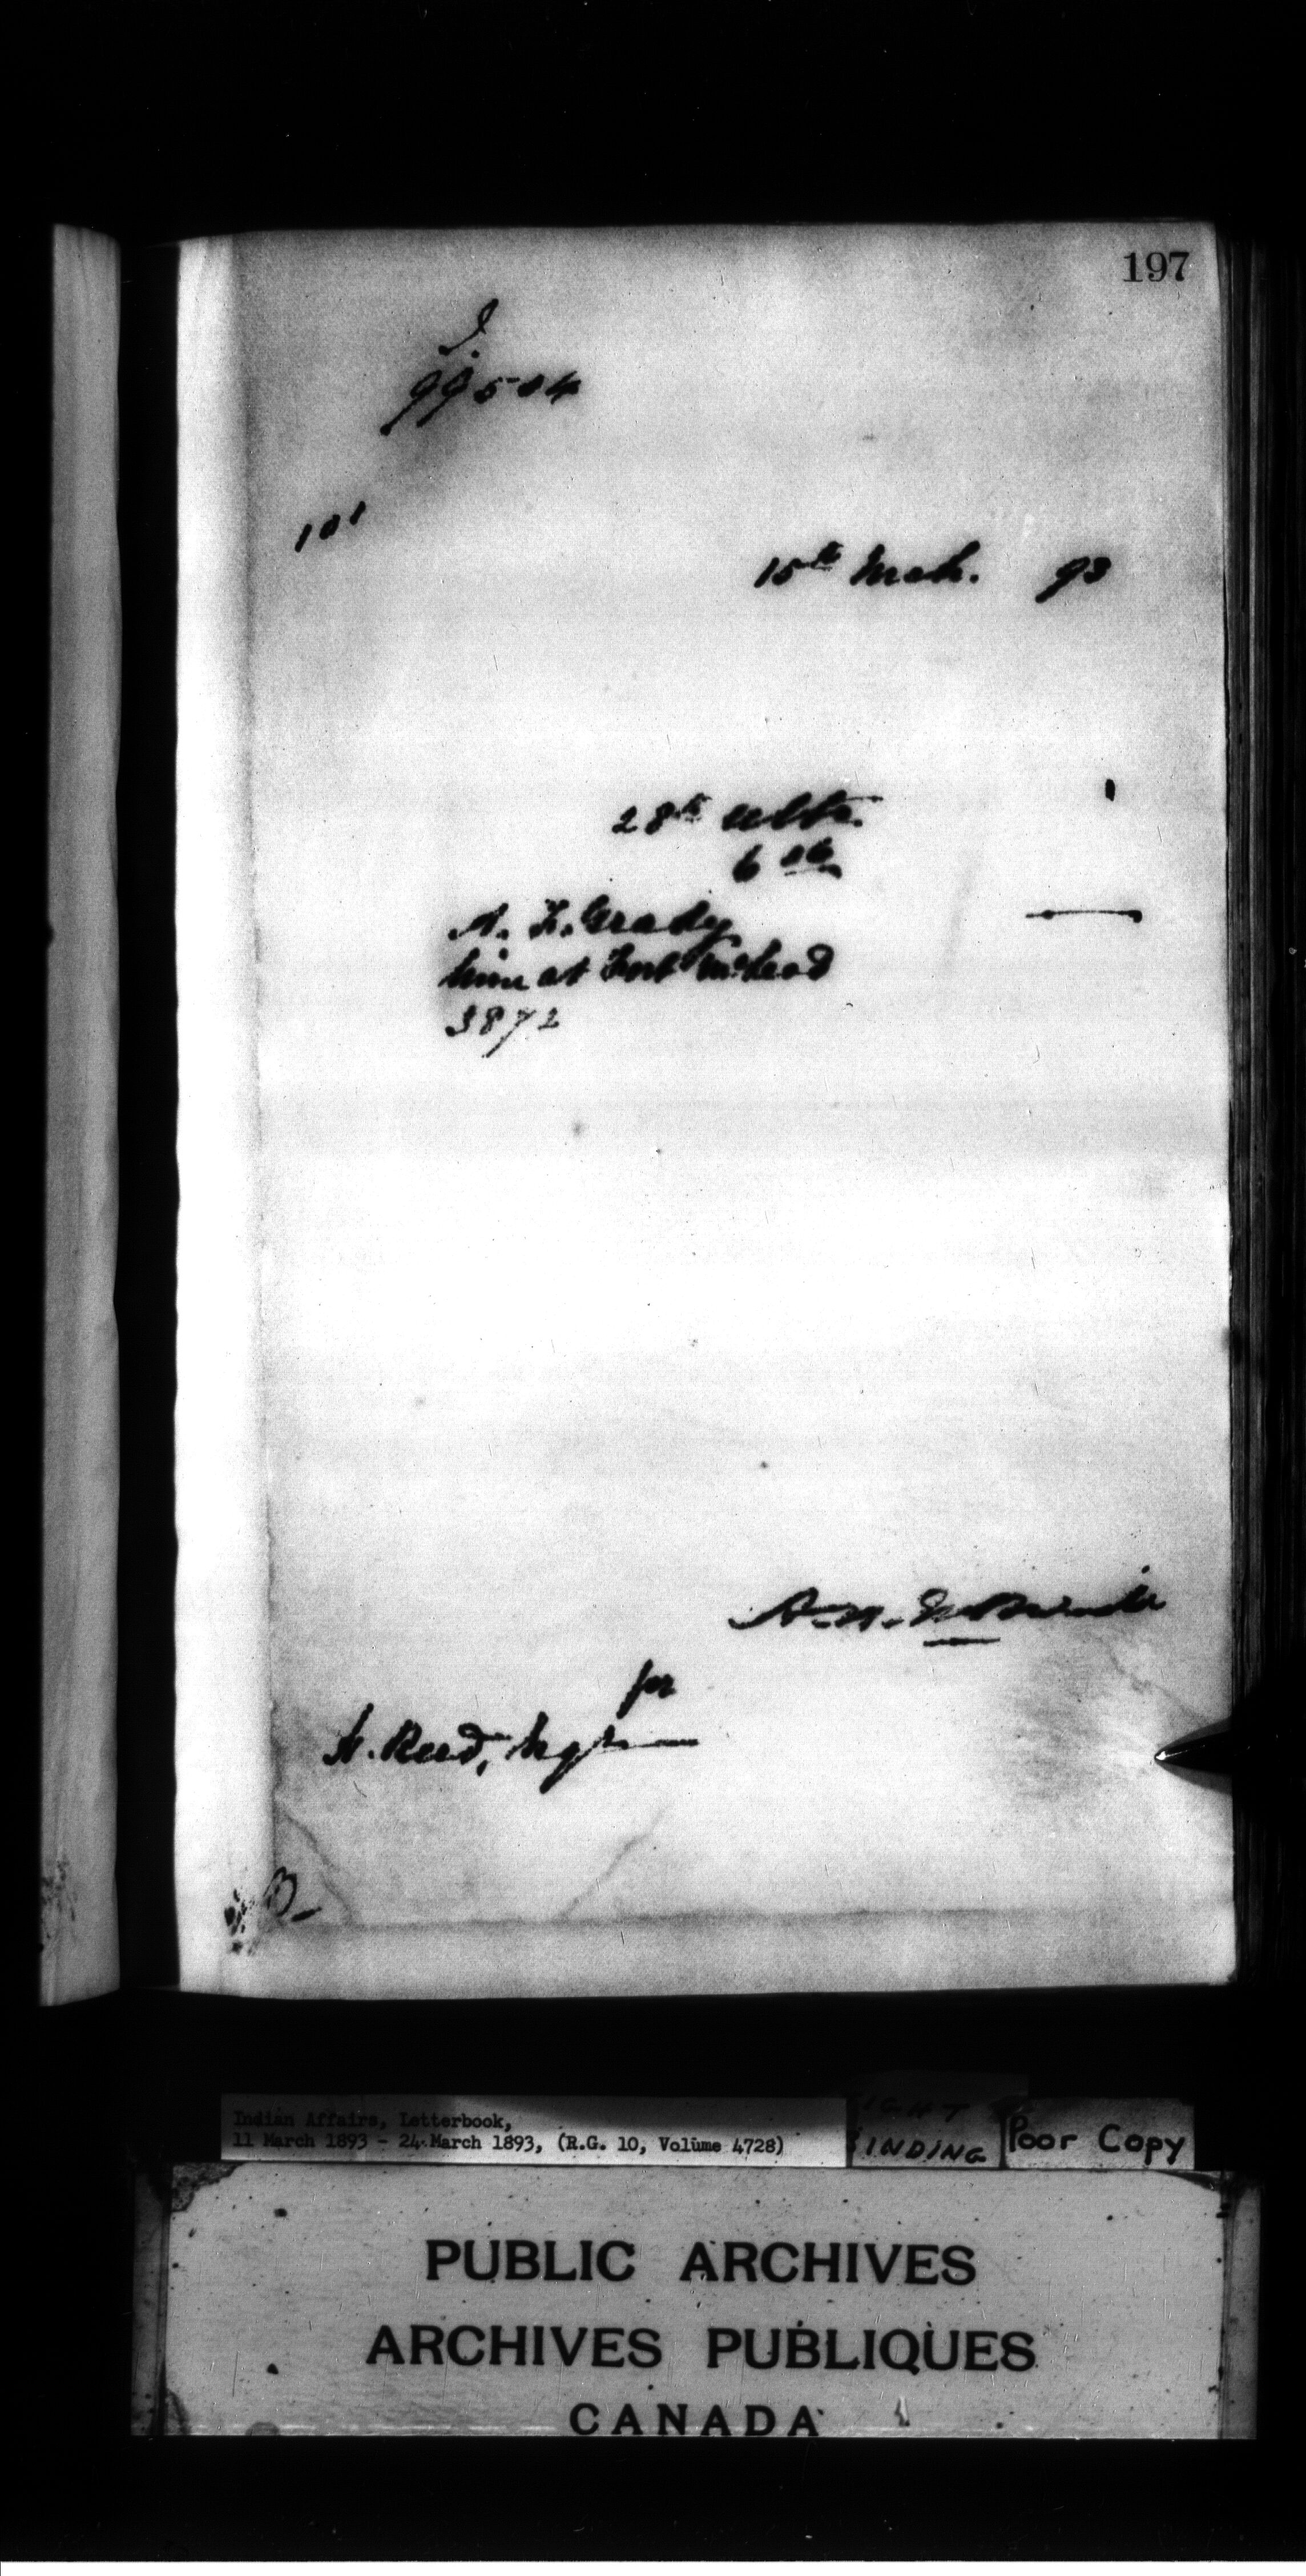 197
99504
101
15th Mch. 93
28th ulto.
6
A. F. Grady
him at Fort McLeod
3872
A. N. McNeill
pr
H. Reed,
Indian Affairs, Letterbook,
11 March 1893 - 24 March 1893, (R.G. 10, Volume 4728)
INDING
Poor Copy
PUBLIC ARCHIVES
ARCHIVES PUBLIQUES
CANADA